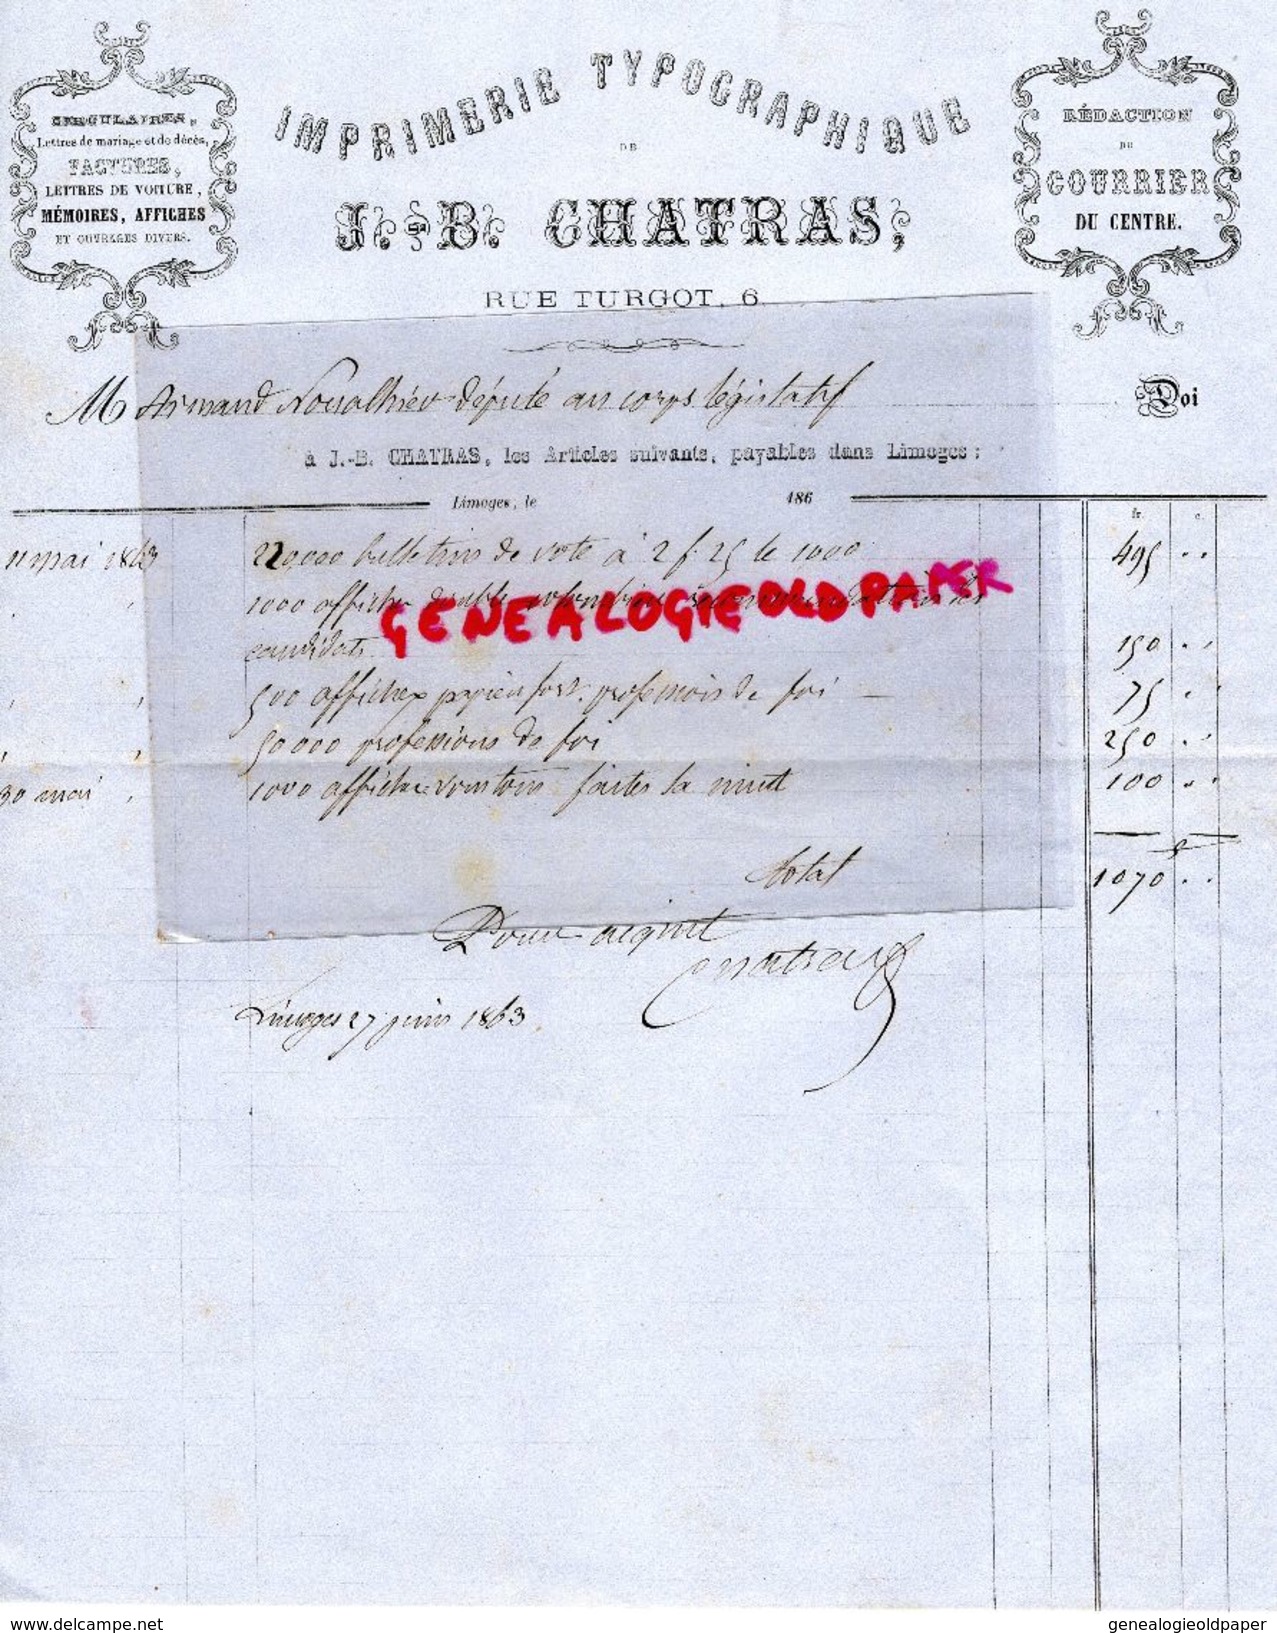 CIRCULAIRES,
Lettres de mariage et de décès,
FACTURES,
LETTRES DE VOITURE,
MÉMOIRES, AFFICHES
ET OUVRAGES DIVERS.
IMPRIMERIE TYPOGRAPHIQUE
DE
J.-B. CHATRAS,
RUE TURGOT, 6
RÉDACTION
DU
COURRIER
DU CENTRE.
M Armand Noualhier député au corps législatif Doi
à J.-B. CHATRAS, les Articles suivants, payables dans Limoges :
Limoges, le 186
fr. c.
11 mai 1863 220,000 bulletins de vote à 2 f. 25 le 1000 495 " "
1000 affiches double colombier recommandation des
candidats 150 " "
500 affiches papier fort. professions de foi 75 " "
50000 professions de foi 250 " "
30 mai 1000 affiches faites la nuit 100 " "
total 1070 " "
Pour acquit
Chatras
Limoges 27 juin 1863.
GENEALOGIEOLDPAPER
www.delcampe.net
genealogieoldpaper